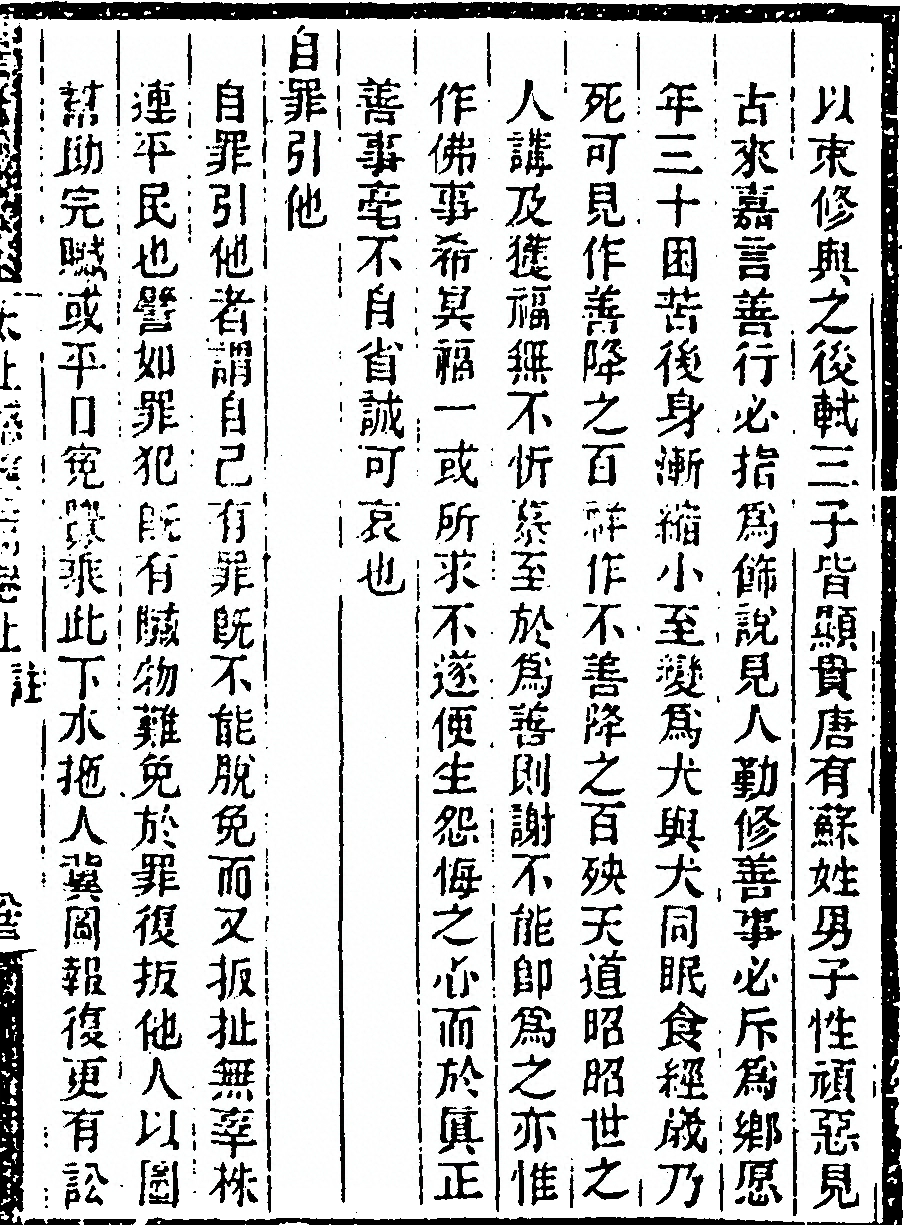 以束修與之後軾三子皆顯貴唐有蘇姓男子性頑惡見
古來嘉言善行必指爲飾說見人勤修善事必斥爲鄉愿
年三十困苦後身漸縮小至變爲犬與犬同眠食經歲乃
死可見作善降之百祥作不善降之百殃天道昭昭世之
人講及獲福無不忻慕至於爲善則謝不能卽爲之亦惟
作佛事希冥福一或所求不遂便生怨悔之心而於眞正
善事毫不自省誠可哀也
自罪引他
自罪引他者謂自己有罪旣不能脫免而又扳扯無辜株
連平民也譬如罪犯旣有贓物難免於罪復扳他人以圖
幫助完贓或平日寃讐乘此下水拖人冀圖報復更有訟
太上感應
卷上
註